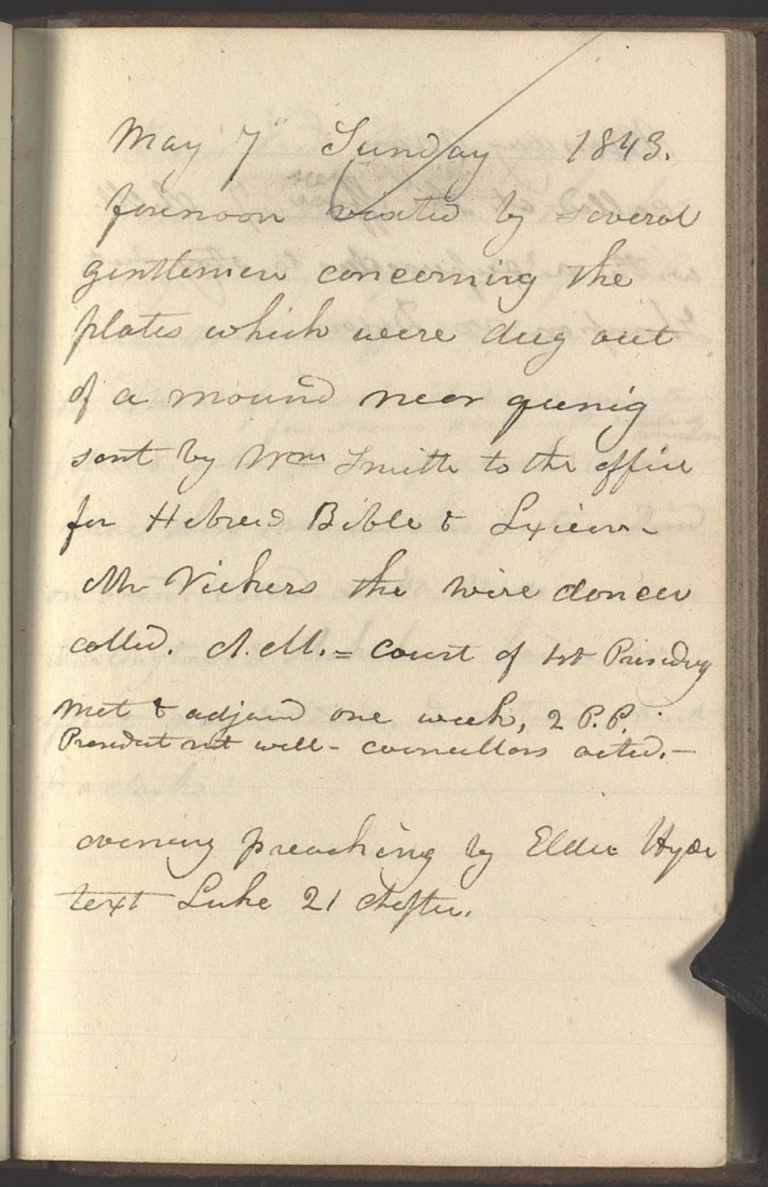 May 7" Sunday 1843.
forenoon visited by several
gentlemen concerning the
plates which were dug out
of a mound near quinig
sent by Wm Smith to the office
for Hebrew Bible & Lexicon-
Mr Vickers the wire dancer
called. A.M.= court of 1st Presidncy
met & adjound one week, 2 P.P.
President not well- councillors acted.-
evening preaching by Elder Hyde
text Luke 21 chapter.